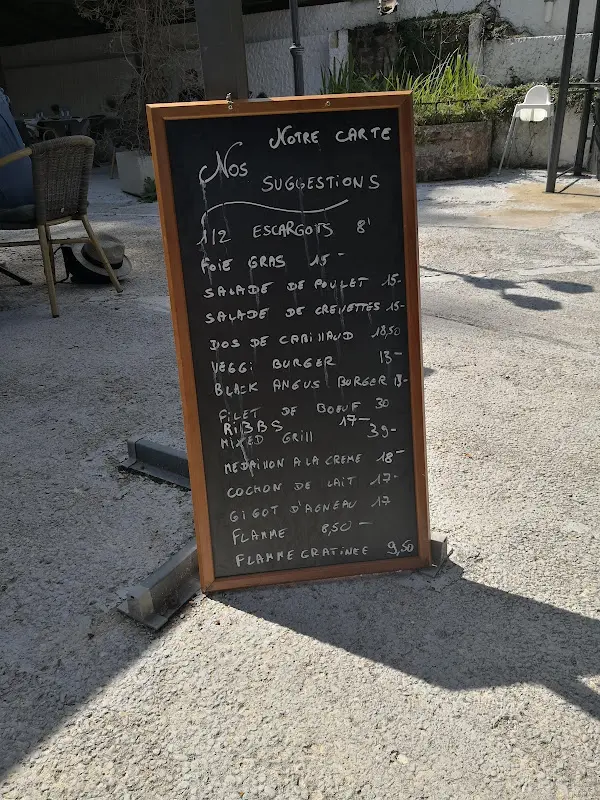 NOTRE CARTE
NOS
SUGGESTIONS
1/2 ESCARGOTS 8'
FOIE GRAS 15-
SALADE DE POULET 15-
SALADE DE CREVETTES 15-
DOS DE CABILLAUD 18,50
VEGGI BURGER 13-
BLACK ANGUS BURGER 13-
FILET DE BOEUF 30
RIBBS 17-
MIXED GRILL 39-
MEDAILLON A LA CREME 18-
COCHON DE LAIT 17-
GIGOT D'AGNEAU 17
FLAMME 8,50-
FLAMME GRATINEE 9,50